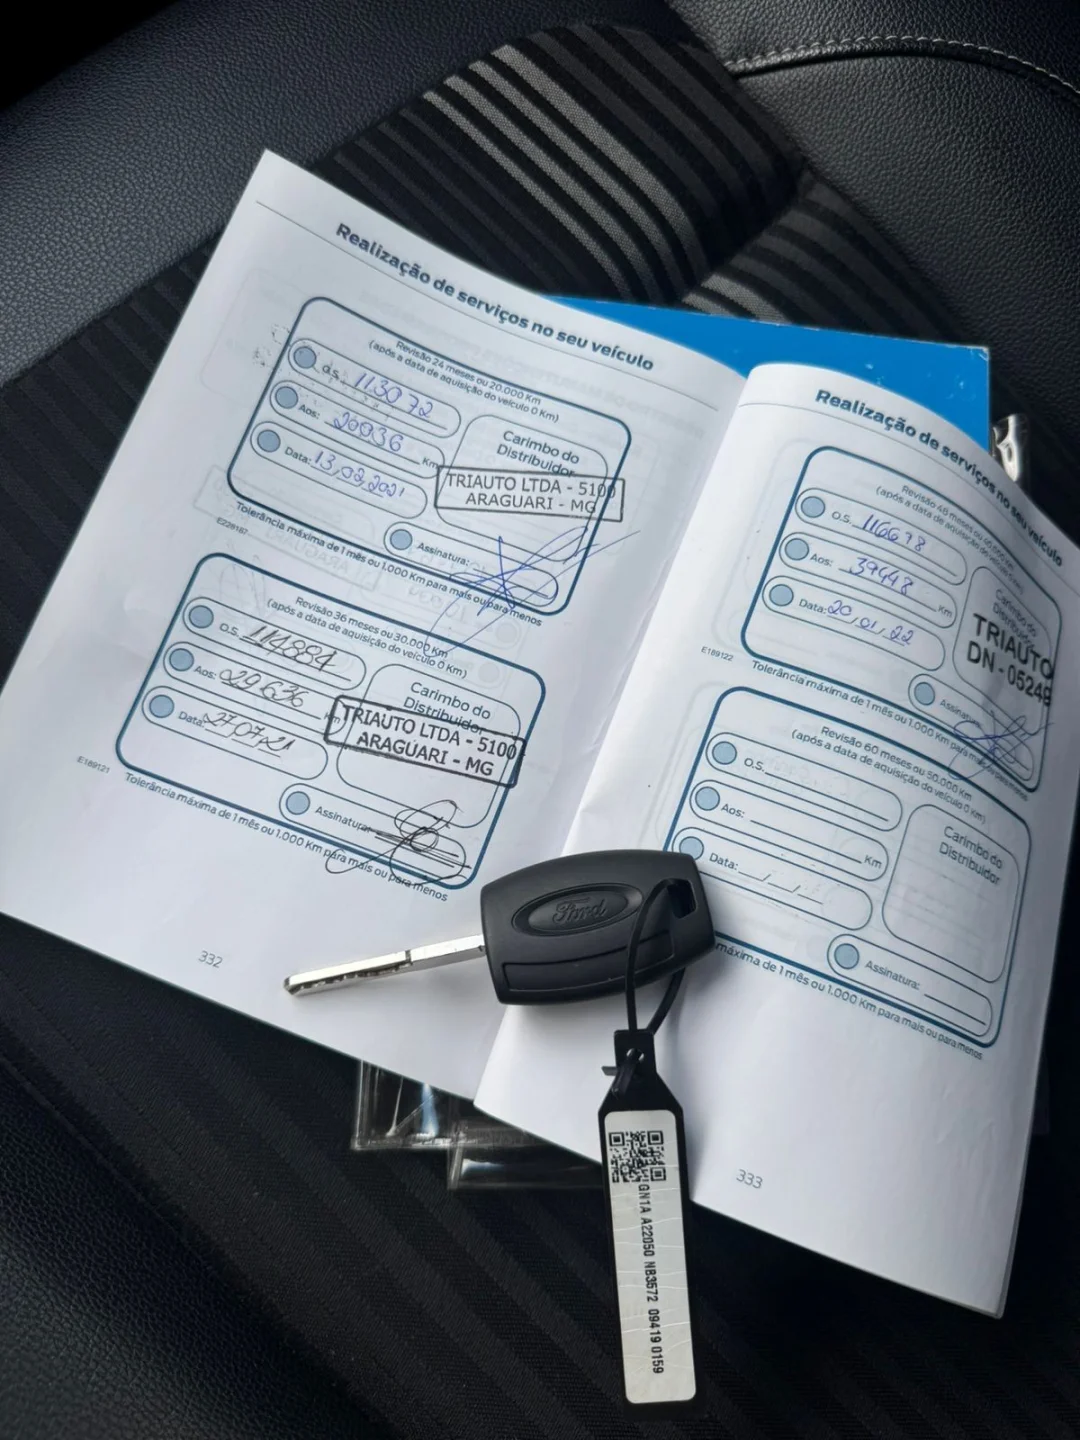 Realização de serviços no seu veículo
Revisão 24 meses ou 20.000 Km
(após a data de aquisição do veículo 0 Km)
O.S. 113072
Aos: 20036 Km
Data: 13,02,2021
Carimbo do
Distribuidor
TRIAUTO LTDA - 5100
ARAGUARI - MG
Assinatura:
Tolerância máxima de 1 mês ou 1.000 Km para mais ou para menos
E228187
Revisão 36 meses ou 30.000 Km
(após a data de aquisição do veículo 0 Km)
O.S. 114884
Aos: 29636 Km
Data: 27,07,21
Carimbo do
Distribuidor
TRIAUTO LTDA - 5100
ARAGUARI - MG
Assinatura:
E189121
Tolerância máxima de 1 mês ou 1.000 Km para mais ou para menos
332
Realização de serviços no seu veículo
Revisão 48 meses ou 40.000 Km
(após a data de aquisição do veículo 0 Km)
O.S. 116678
Aos: 39448 Km
Data: 20,01,22
Carimbo do
Distribuidor
TRIAUTO
DN - 05248
Assinatura:
E189122
Tolerância máxima de 1 mês ou 1.000 Km para mais ou para menos
Revisão 60 meses ou 50.000 Km
(após a data de aquisição do veículo 0 Km)
O.S.
Aos: Km
Data:
Carimbo do
Distribuidor
Assinatura:
máxima de 1 mês ou 1.000 Km para mais ou para menos
333
Ford
GN1A A22050 NB3572 09419 0159